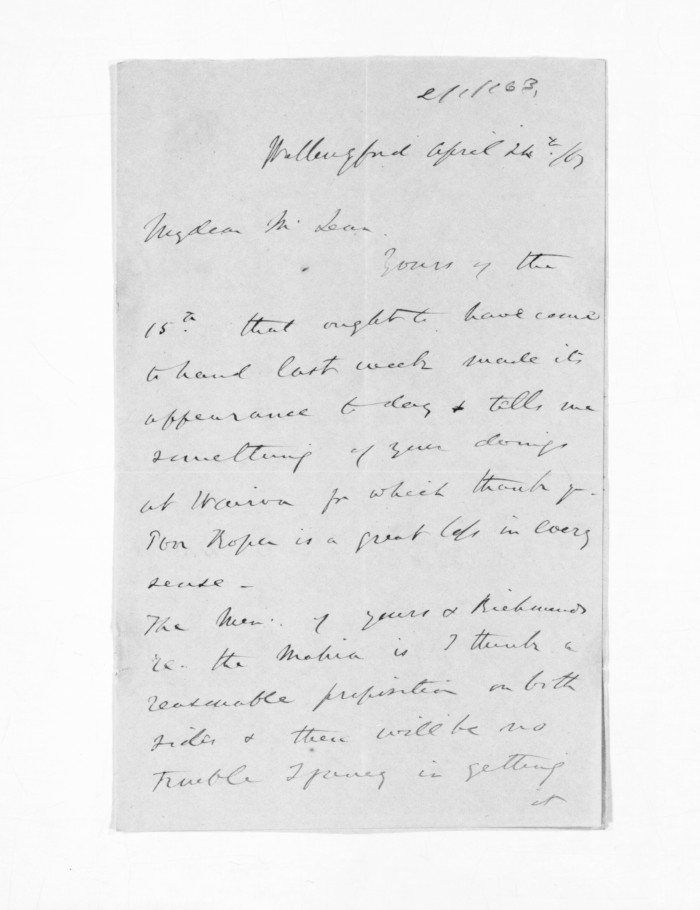 Wallingford April 24th /67
My dear Mc Lean.
Yours of the
15th that ought to have come
to hand last week made its
appearance to day & tells me
something of your doings
at Wairoa for which thank y-
Poor Kopu is a great loss in every
sense -
The Mem: of yours & Richmonds
re. the Mahia is I think a
reasonable proposition on both
sides & there will be no
trouble I fancy in getting
it